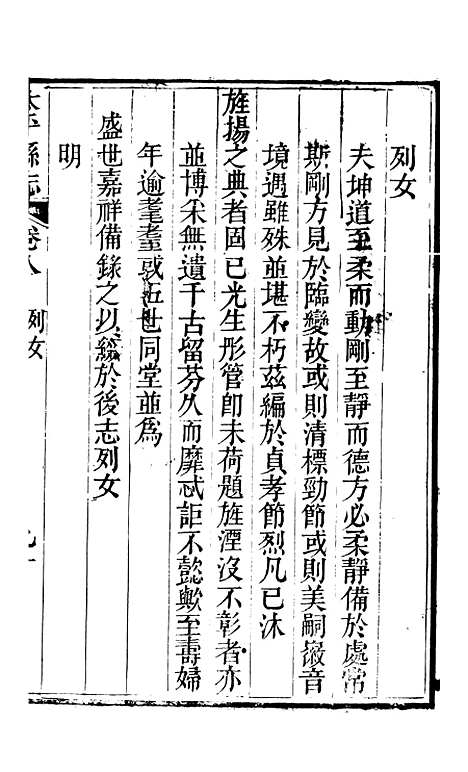 列女
夫坤道至柔而動剛至靜而德方必柔靜備於處常
斯剛方見於臨變故或則清標勁節或則美嗣徽音
境遇雖殊並堪不朽茲編於貞孝節烈凡已沐
旌揚之典者固已光生彤管卽未荷題旌湮沒不彰者亦
並博采無遺千古留芬久而靡忒詎不懿歟至壽婦
年逾耄耋或五世同堂並為
盛世嘉祥備錄之以綴於後志列女
明
縣志 卷八 列女